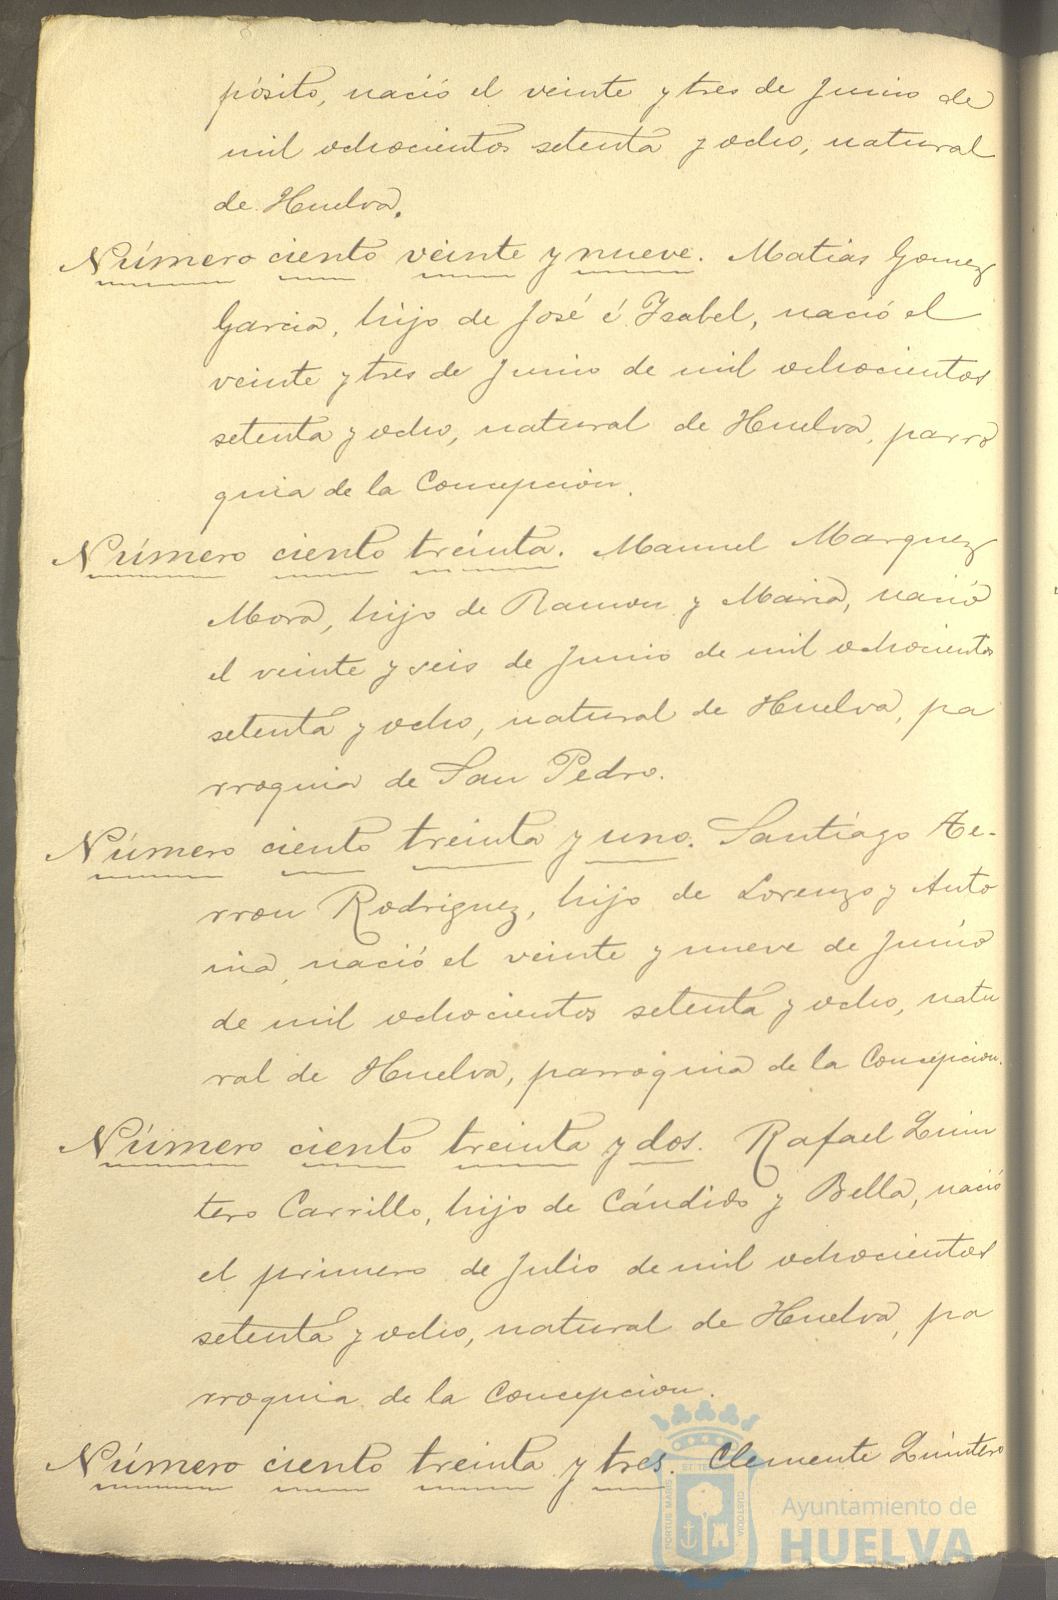 pósito, nació el veinte y tres de Junio de
mil ochocientos setenta y ocho, natural
de Huelva.
Número ciento veinte y nueve. Matias Gomez
Garcia, hijo de José é Isabel, nació el
veinte y tres de Junio de mil ochocientos
setenta y ocho, natural de Huelva, parro
quia de la Concepcion.
Número ciento treinta. Manuel Marquez
Mora, hijo de Ramon y Maria, nació
el veinte y seis de Junio de mil ochocientos
setenta y ocho, natural de Huelva, pa
rroquia de San Pedro.
Número ciento treinta y uno. Santiago
rron Rodriguez, hijo de Lorenzo y Anto
nia, nació el veinte y nueve de Junio
de mil ochocientos setenta y ocho, natu
ral de Huelva, parroquia de la Concepcion.
Número ciento treinta y dos. Rafael Quin
tero Carrillo, hijo de Cándido y Bella, nació
el primero de Julio de mil ochocientos
setenta y ocho, natural de Huelva, pa
rroquia de la Concepcion.
Número ciento treinta y tres. Clemente Quintero
PORTUS MARIS ET TERRAE CUSTODIA
Ayuntamiento de
HUELVA